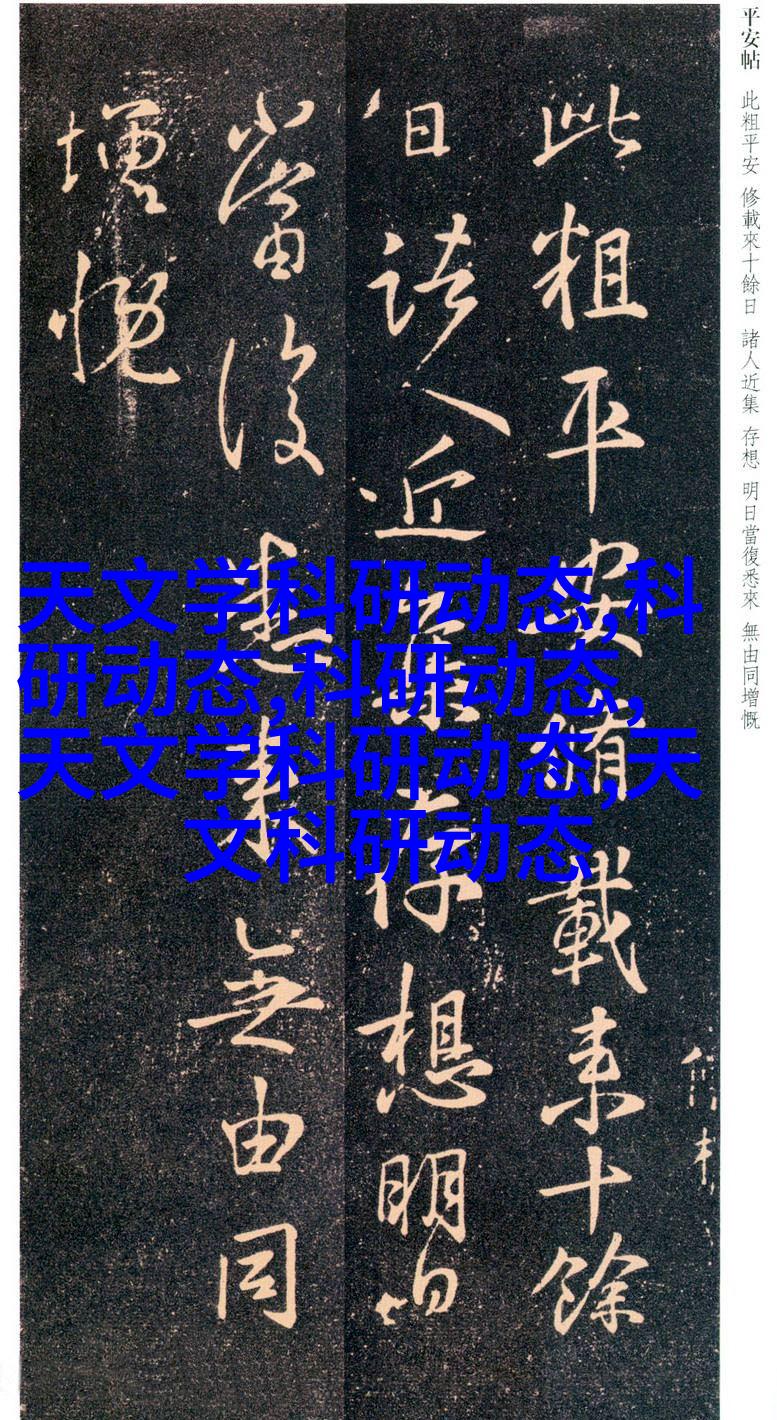 平安帖 此粗平安 修載來十餘日 諸人近集 存想 明日當復悉來 無由同增慨
此粗平安脩載来十餘
日諸人近集存想明日
當復悉来無由同
增慨
天文学科研动态,科
研动态,科研动态,
天文学科研动态,天
文科研动态